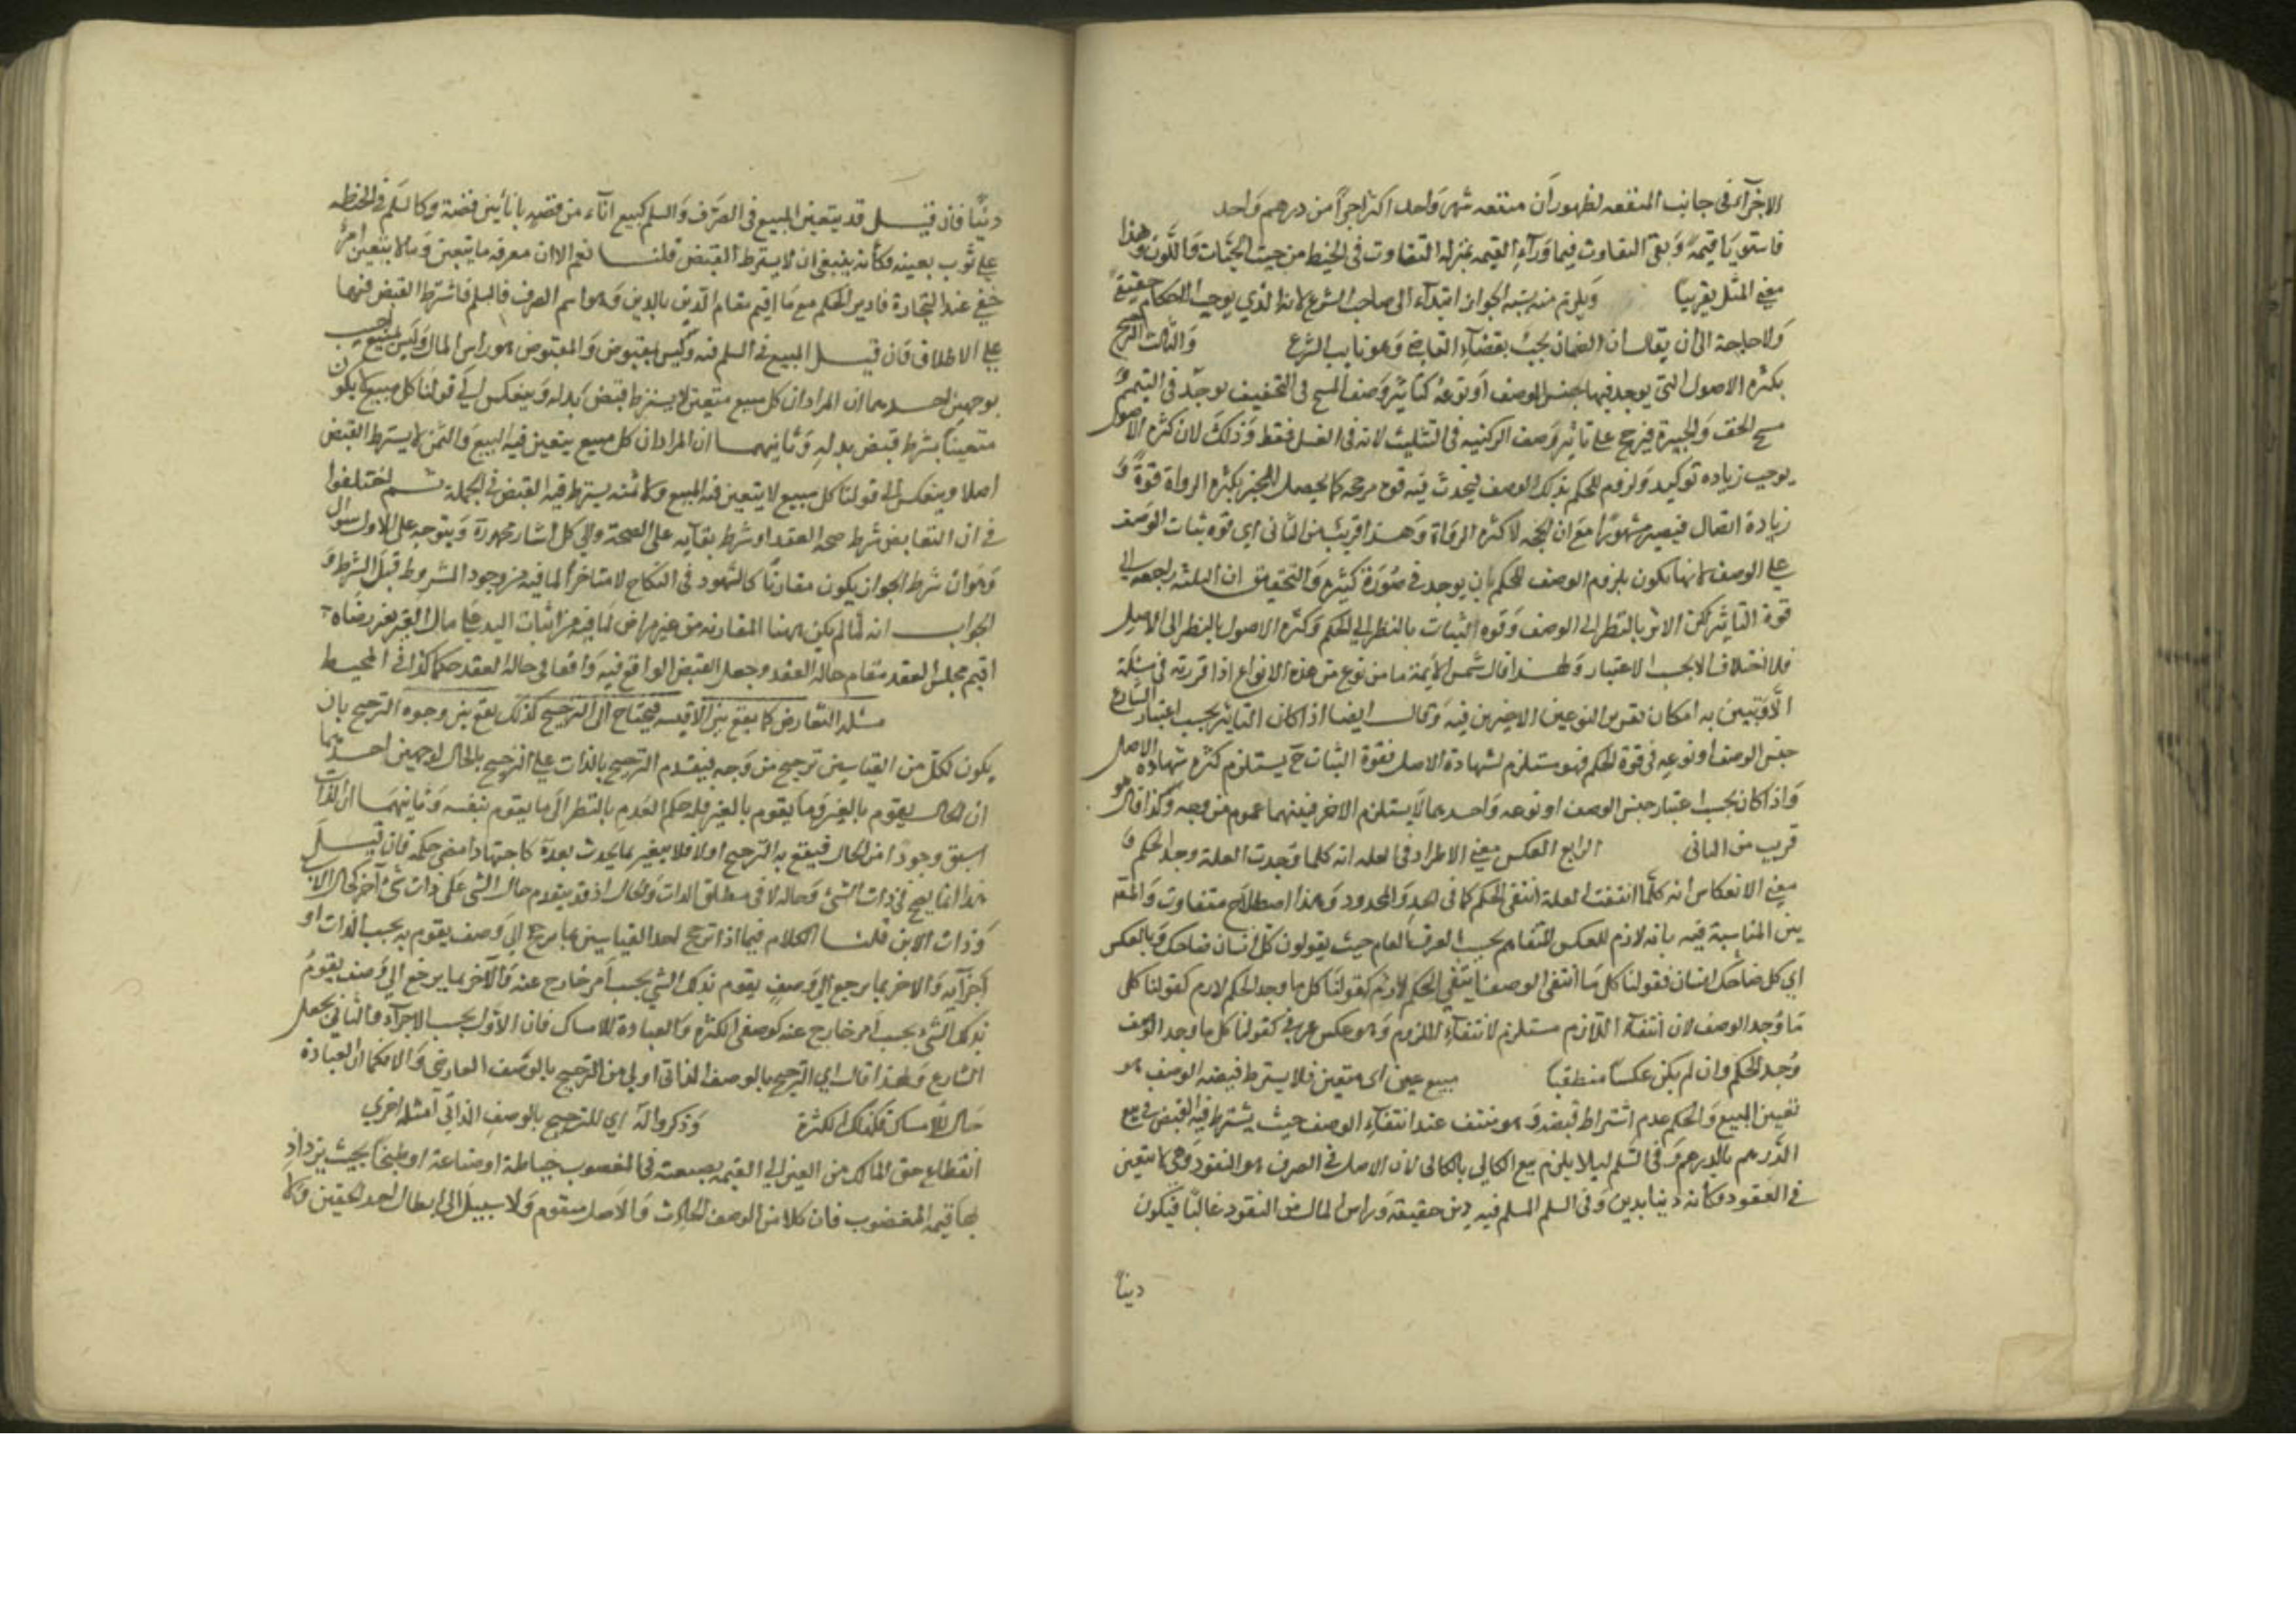 الاجزآء فى جانب المنفعه لظهور ان منفعه شهر واحد اكثر اجزآ من درهم واحد
فاستويا قيمة وبقى التفاوت فيما ورآء القيمه بمنزلة التفاوت فى الحنطة من حيث الحبات واللون وهذا
معنى المثل تقريبا ويلزم منه نسبة الجور ابتدآء الى صاحب الشرع لانه الذي يوجب الاحكام حقيقة
ولا حاجة الى ان يقال ان الضمان يجب بقضآء القاضى وهو نايب الشرع والثالث الترجيح
بكثرة الاصول التى يوجد فيها جنس الوصف او نوعه كتاثير وصف المسح فى التخفيف يوجد فى التيمم و
مسح الخف والجبيرة فيرجح على تاثير وصف الركنيه فى التثليث لانه فى الغسل فقط وذلك لان كثرة الاصول
يوجب زياده توكيد ولزوم للحكم بذلك الوصف فيحدث فيه قوة مرجحه كما يحصل للخبر بكثرة الرواة قوة و
زيادة اتصال فيصير مشهورا مع ان الحجه لا كثرة الرواة وهذا قريب من الثانى اى قوة ثبات الوصف
على الوصف لانها تكون بلزوم الوصف للحكم بان يوجد فى صورة كثيرة والتحقيق ان الثلثة راجعه الى
قوة التاثير لكن الاثر بالنظر الى الوصف وقوة الثبات بالنظر الى الحكم وكثرة الاصول بالنظر الى الاصل
فلا اختلاف الا بحسب الاعتبار ولهذا قال شمس الأيمة ما من نوع من هذه الانواع اذا قررته فى مسئلة
الا وتبين به امكان تقرير النوعين الاخيرين فيه وقال ايضا اذا كان التاثير بحسب اعتبار الشارع
جنس الوصف او نوعه فى قوة الحكم فهو مستلزم لشهادة الاصل فقوة الثبات ح يستلزم كثرة شهادة الاصل
واذا كان بحسب اعتبار جنس الوصف او نوعه واحدهما لا يستلزم الاخر فبينهما عموم من وجه وكذا قال هو
قريب من الثانى الرابع العكس معنى الاطراد فى العله انه كلما وجدت العلة وجد الحكم و
معنى الانعكاس انه كلما انتفت العلة انتفى الحكم كما فى الحد والمحدود وهذا اصطلاح متفاوت والمقم
بين المناسبة فيه بانه لازم للعكس المتفاهم بحسب العرف العام حيث يقولون كل انسان ضاحك وبالعكس
اي كل ضاحك انسان فقولنا كل ما انتفى الوصف انتفى الحكم لازم لقولنا كل ما وجد الحكم لازم كقولنا كلى
ما وجد الوصف لان انتفآء اللازم مستلزم لانتفآء الملزوم وهو عكس عرفى كقولنا كل ما وجد الوصف
وجد الحكم وان لم يكن عكسا منطقيا مبيع عين اى متعين فلا يشترط قبضه الوصف هو
تعيين المبيع والحكم عدم اشتراط قبضه وهو منتف عند انتفآء الوصف حيث يشترط فيه القبض فى بيع
الدرهم بالدرهم وفى السلم ليلا يلزم بيع الكالى بالكالى لان الاصل فى الصرف هو النقود وهى لا تتعين
فى العقود فكانه دينا بدين وفى السلم المسلم فيه دين حقيقة وراس المال من النقود غالبا فيكون
دينا
دينا فان قيل قد يتعين المبيع فى الصرف والسلم كبيع اناء من فضه باناءين فضة وكالسلم فى الحنطه
على ثوب بعينه فكانه ينبغى ان لا يشترط القبض قلنا نعم الا ان معرفه ما يتعين وما لا يتعين امر
خفى عند التجارة فادير الحكم مع ما اقيم مقام الدين بالدين وهو اسم الصرف والسلم فاشترط القبض فيهما
على الاطلاق فان قيل المبيع فى السلم فيه وليس بمقبوض والمقبوض هو راس المال وليس بمبيع اجيب
بوجهين احدهما ان المراد ان كل مبيع متعين لا يشترط قبض بدله وينعكس الى قولنا كل مبيع لا يكون
متعينا يشترط قبض بدله وثانيهما ان المراد ان كل مبيع يتعين فيه المبيع والثمن لا يشترط القبض
اصلا وينعكس الى قولنا كل مبيع لا يتعين فيه المبيع ولا ثمنه يشترط فيه القبض فى الجملة ثم اختلفوا
فى ان التقابض شرط صحة العقد او شرط بقآيه على الصحة والى كل اشار محمد ويتوجه على الاول سوال
وهو ان شرط الجواز يكون مقارنا كالشهود فى النكاح لا متاخرا لما فيه من وجود المشروط قبل الشرط و
الجواب انه لما لم يكن ههنا المقارنه من غير تراض لما فيه من اثبات اليد على مال الغير بغير رضاه
اقيم مجلس العقد مقام حالة العقد وجعل القبض الواقع فيه واقعا فى حالة العقد حكما كذا فى المحيط
مسئله التعارض كما يقع بين الاقيسه فيحتاج الى الترجيح كذلك يقع بين وجوه الترجيح بان
يكون لكل من القياسين ترجيح من وجه فيقدم الترجيح بالذات على الترجيح بالحال لوجهين احدهما
ان الحال يقوم بالغير وما يقوم بالغير فله حكم العدم بالنظر الى ما يقوم بنفسه وثانيهما ان الذات
اسبق وجودا من الحال فيقع به الترجيح اولا فلا يتغير بما يحدث بعده كاجتهاد امضى حكمه فان قيل
هذا انما يصح فى ذات الشئ وحاله لا فى مطلق الذات والحال اذ قد يتقدم حال الشئ على ذات شئ آخر كحال الاب
وذات الابن قلنا الكلام فيما اذا ترجح احد القياسين بما يرجع الى وصف يقوم به بحسب الذات او
اجزآيه والاخر بما يرجع الى وصف يقوم بذلك الشئ بحسب امر خارج عنه والآخر بما يرجع الى وصف يقوم
بذلك الشئ بحسب امر خارج عنه كوصفى الكثرة والعبادة للامساك فان الاول بحسب الاجزآء والثانى بجعل
الشارع ولهذا قال اي الترجيح بالوصف الذاتى اولى من الترجيح بالوصف العارضى والا فكما ان العبادة
حال للامساك فكذلك الكثرة وذكروا له اي للترجيح بالوصف الذاتى امثله اخرى
انقطاع حق المالك من العين الى القيمه بصنعت فى المغصوب خياطة او صناعة او طبخا بحيث يزداد
بها قيمه المغصوب فان كلا من الوصف الحادث والاصل متقوم ولا سبيل الى ابطال احد الحقين ولا